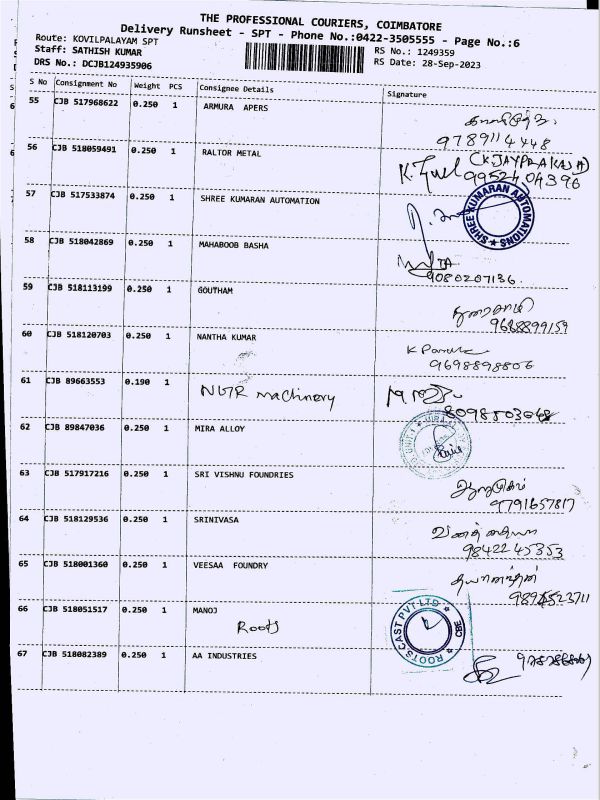 THE PROFESSIONAL COURIERS, COIMBATORE
Delivery Runsheet - SPT - Phone No.:0422-3505555 - Page No.:6
Route: KOVILPALAYAM SPT
RS No.: 1249359
Staff: SATHISH KUMAR
RS Date: 28-Sep-2023
DRS No.: DCJB124935906
S No Consignment No Weight PCS Consignee Details Signature
55 CJB 517968622 0.250 1 ARMURA APERS
9789114448
56 CJB 518059491 0.250 1 RALTOR METAL
(K JAYPRAKASH)
9952404396
57 CJB 517533874 0.250 1 SHREE KUMARAN AUTOMATION
SHREE KUMARAN AUTOMATIONS
58 CJB 518042869 0.250 1 MAHABOOB BASHA
9080207136.
59 CJB 518113199 0.250 1 GOUTHAM
துரைசாமி
9688899159
60 CJB 518120703 0.250 1 NANTHA KUMAR
9698898806
61 CJB 89663553 0.190 1 NGR machinery
8098503068
62 CJB 89847036 0.250 1 MIRA ALLOY
63 CJB 517917216 0.250 1 SRI VISHNU FOUNDRIES
ஆறுமுகம்
9791657817
64 CJB 518129536 0.250 1 SRINIVASA
9842245353
65 CJB 518001360 0.250 1 VEESAA FOUNDRY
தயானந்தன்
66 CJB 518051517 0.250 1 MANOJ
Roots
ROOTS CAST PVT LTD
CBE
67 CJB 518082389 0.250 1 AA INDUSTRIES